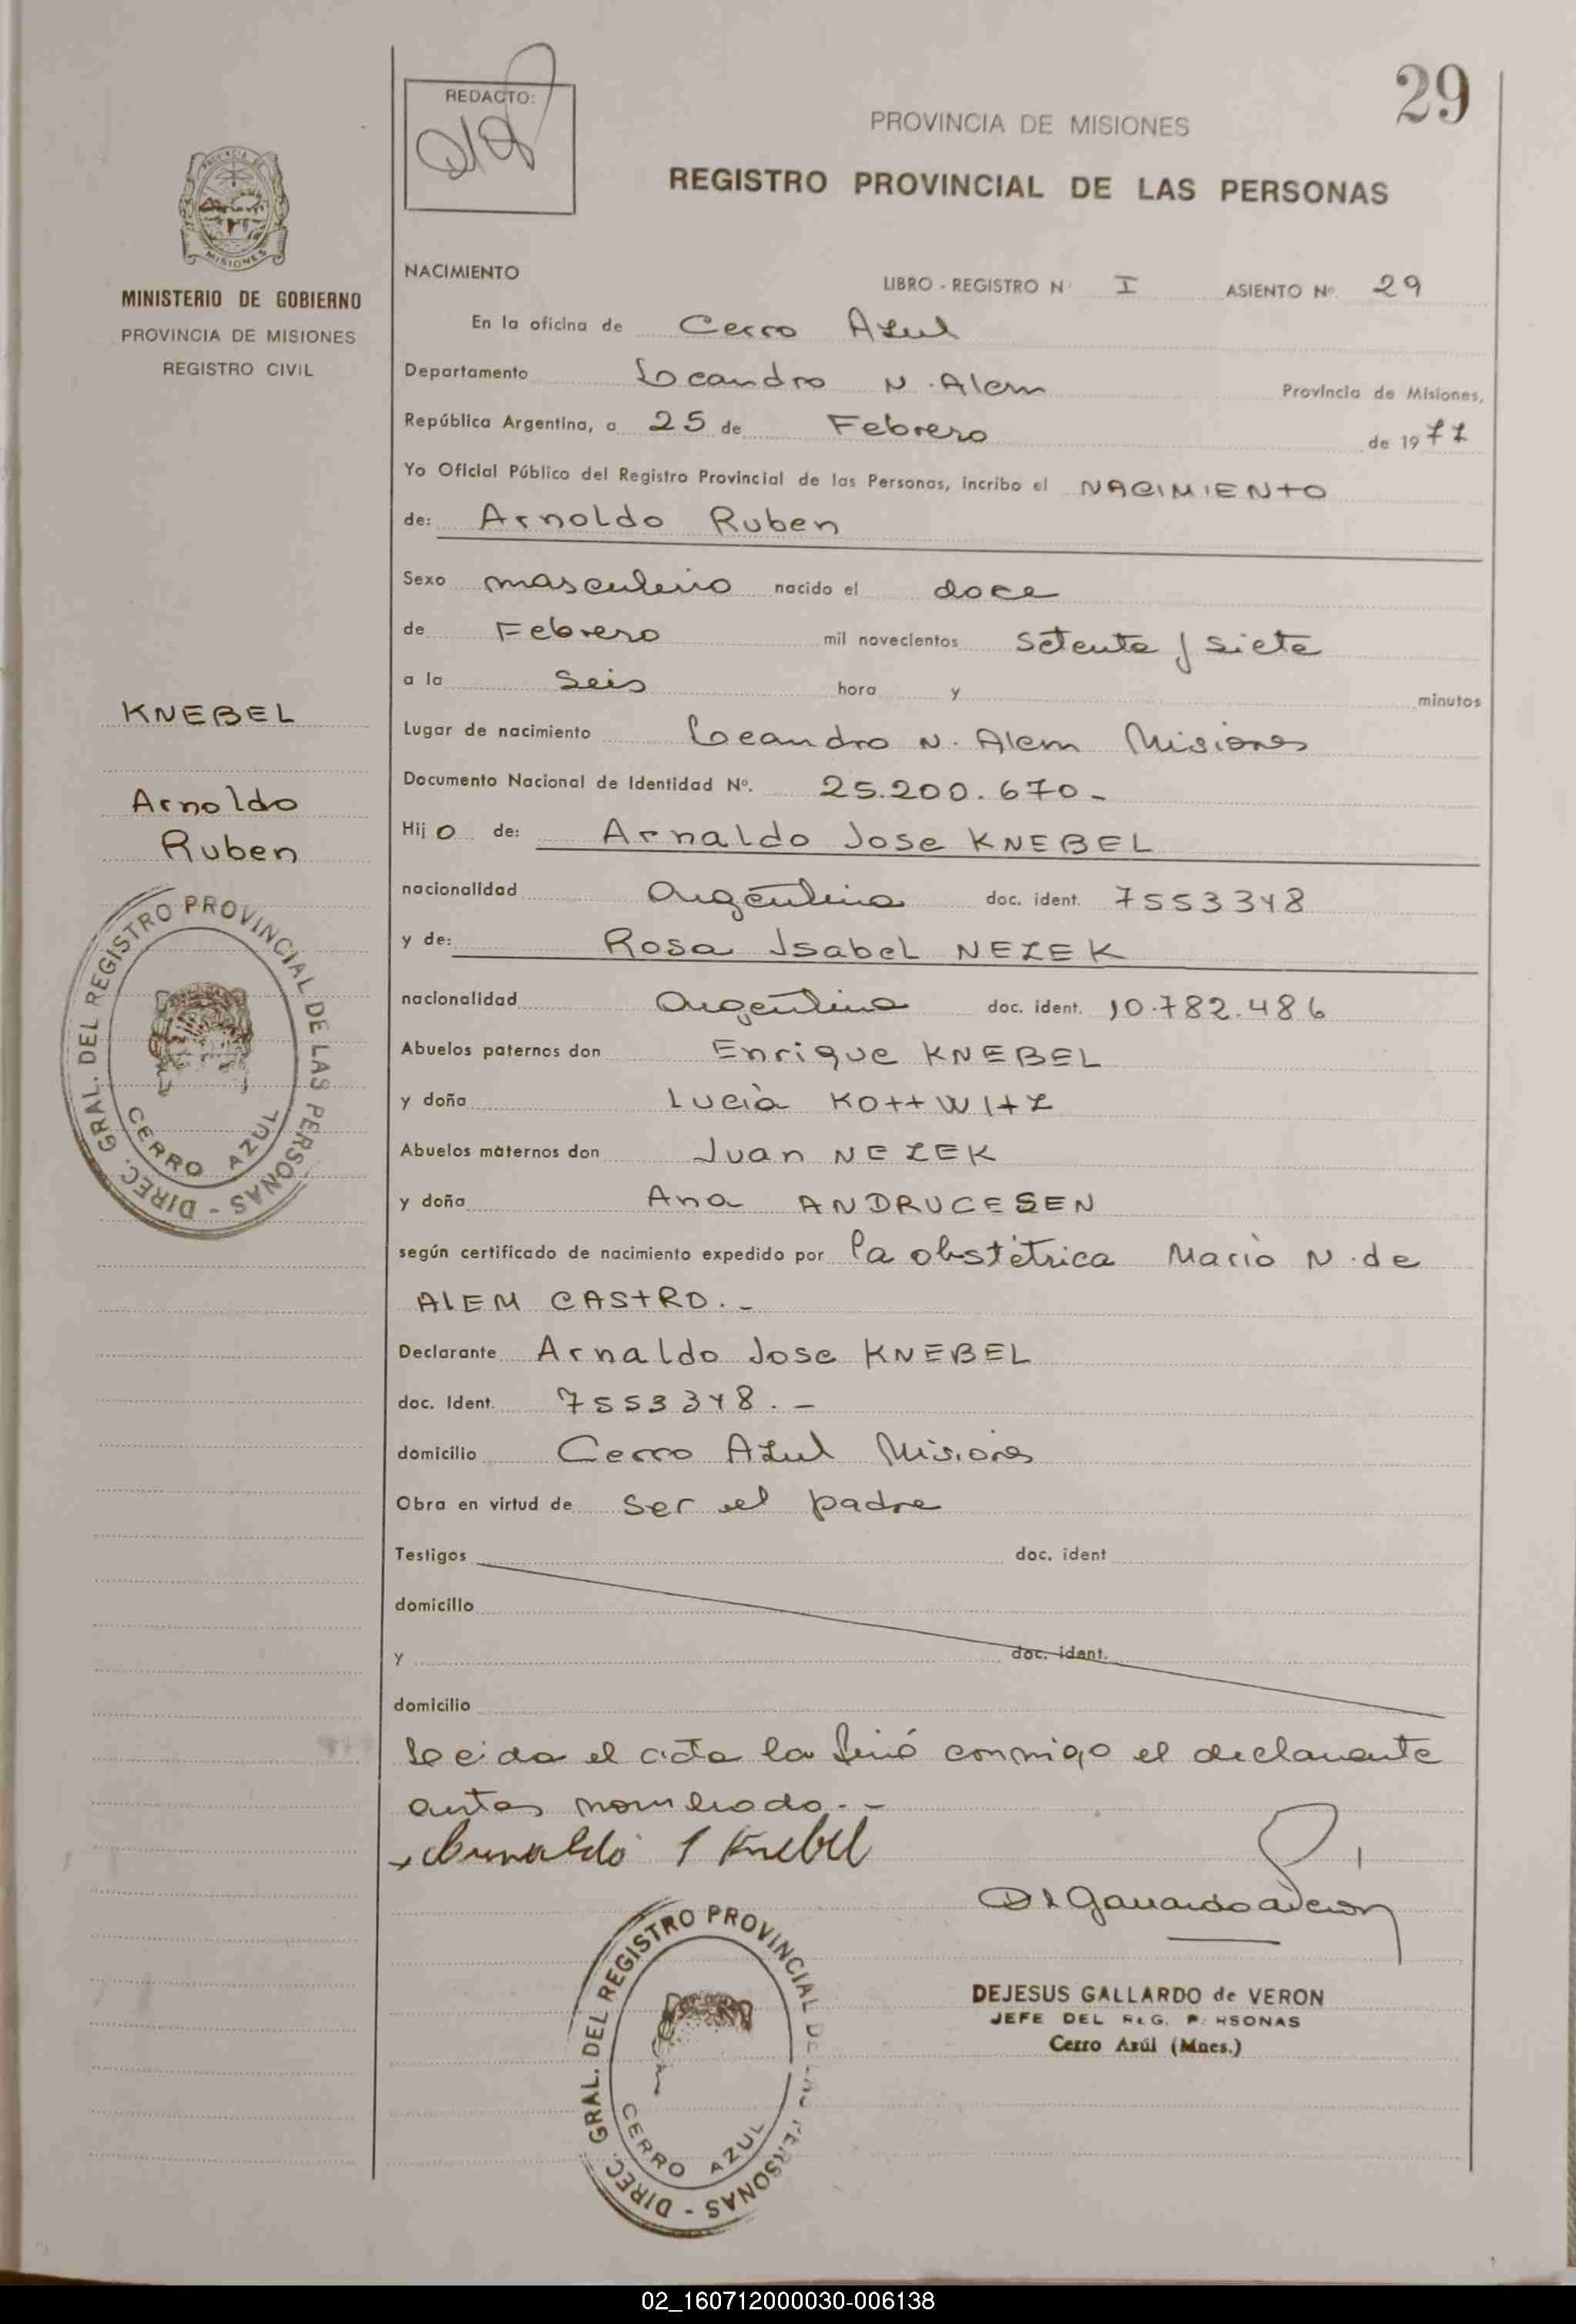 29
REDACTO:
PROVINCIA DE MISIONES
REGISTRO PROVINCIAL DE LAS PERSONAS
MISIONES
MINISTERIO DE GOBIERNO
PROVINCIA DE MISIONES
REGISTRO CIVIL
NACIMIENTO
LIBRO - REGISTRO N° I ASIENTO Nº. 29
En la oficina de Cerro Azul
Departamento Leandro N. Alem Provincia de Misiones,
República Argentina, a 25 de Febrero de 1977
Yo Oficial Público del Registro Provincial de las Personas, incribo el NACIMIENTO
de: Arnoldo Ruben
Sexo masculino nacido el doce
de Febrero mil novecientos setenta y siete
a la seis hora y minutos
Lugar de nacimiento Leandro N. Alem Misiones
Documento Nacional de Identidad Nº. 25.200.670-
Hijo de: Arnaldo Jose KNEBEL
nacionalidad argentina doc. ident. 7553348
y de: Rosa Isabel NEZEK
nacionalidad argentina doc. ident. 10.782.486
Abuelos paternos don Enrique KNEBEL
y doña Lucia KOTTWITZ
Abuelos maternos don Juan NEZEK
y doña Ana ANDRUCESEN
según certificado de nacimiento expedido por la obstétrica Maria N. de
ALEM CASTRO.-
Declarante Arnaldo Jose KNEBEL
doc. Ident. 7553348.-
domicilio Cerro Azul Misiones
Obra en virtud de ser el padre
Testigos doc. ident
domicilio
y doc. ident.
domicilio
Leida el acta la firmó conmigo el declarante
antes nombrado.-
Arnaldo J Knebel
KNEBEL
Arnoldo
Ruben
DIREC. GRAL. DEL REGISTRO PROVINCIAL DE LAS PERSONAS -
CERRO AZUL
DIREC. GRAL. DEL REGISTRO PROVINCIAL DE LAS PERSONAS -
CERRO AZUL
DEJESUS GALLARDO de VERON
JEFE DEL REG. PERSONAS
Cerro Azúl (Mnes.)
02_160712000030-006138